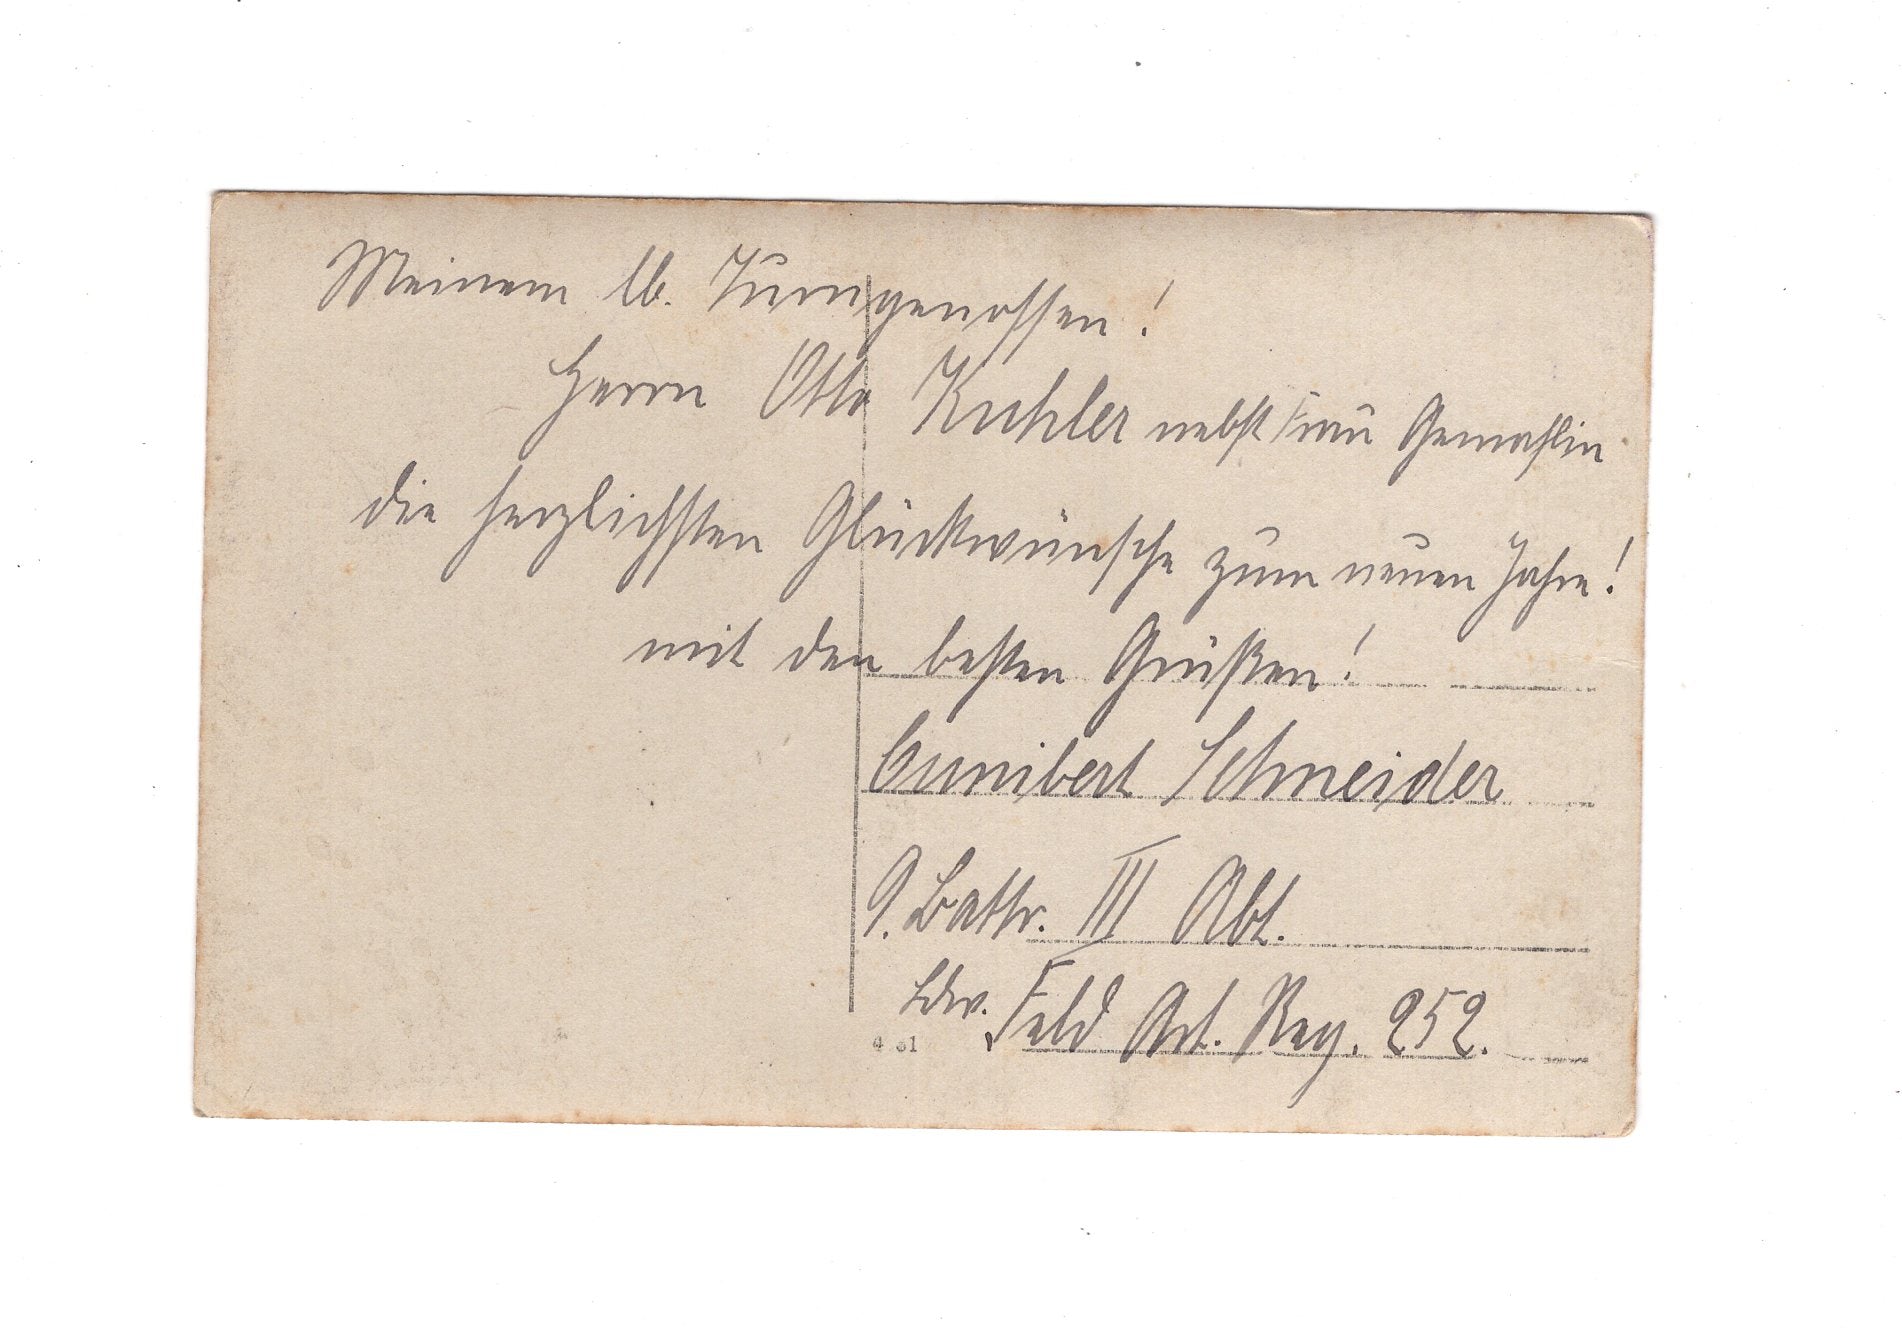 Meinem lb. Turngenossen!
Herrn Otto Kuhler nebst Frau Gemahlin
die herzlichsten Glückwünsche zum neuen Jahre!
mit den besten Grüßen!
Cunibert Schneider
9. Battr. III Abt.
Ldw. Feld Art. Reg. 252.